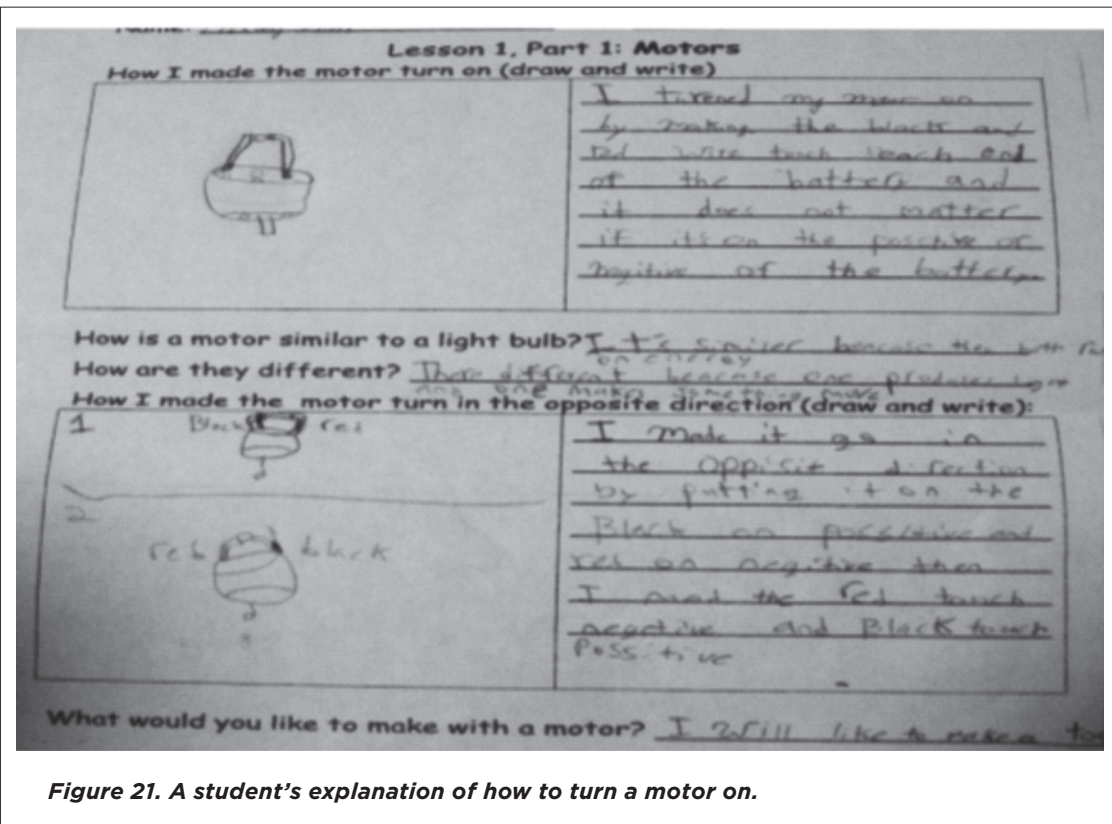 Lesson 1, Part 1: Motors
How I made the motor turn on (draw and write)
I my on
by making the black and
red wire touch each end
of the battery and
it does not matter
if its on the possitive or
negitive of the battery
How is a motor similar to a light bulb? It's similer beacase they both
on energy
How are they different? There different beacase one produces
and one makes something move
How I made the motor turn in the opposite direction (draw and write):
1 Black red
I made it go in
the oppisit direction
by putting it on the
Black on possitive and
red on negitive then
I the red touch
negative and Black touch
possitive
2
red black
What would you like to make with a motor? I will like to make a
Figure 21. A student's explanation of how to turn a motor on.